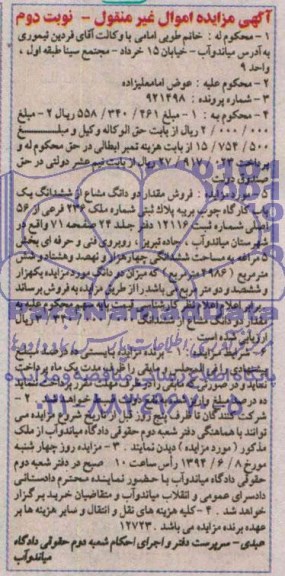 آگهی مزایده اموال غیر منقول - نوبت دوم
۱ - محکوم له : خانم طوبی امامی با وکالت آقای فردین تیموری
به آدرس میاندوآب - خیابان ۱۵ خرداد - مجتمع سینا طبقه اول ،
واحد ۹
۲ - محکوم علیه : عوض امامعلیزاده
۳ - شماره پرونده : ۹۲۱۴۹۸
۴ - محکوم به : ۱ - مبلغ ۲۶۱ / ۳۴۰ / ۵۵۸ ریال ۲ - مبلغ
۰۰۰ / ۰۰۰ / ۲ ریال از بابت حق الوکاله وکیل و مبلـــغ
۵۰۰ / ۷۵۴ / ۱۵ از بابت هزینه تمبر ابطالی در حق محکوم له و
پرداخت ۰۲۳ / ۹۱۷ / ۲۷ ریال از بابت نیم عشر دولتی در حق
صندوق دولت
۵ - مورد مزایده : فروش مقدار دو دانگ مشاع از ششدانگ یک
باب کارگاه چوب بری به پلاک ثبتی شماره ملک ۲۳۶ فرعی از ۵۶
اصلی شماره ثبت ۱۲۱۱۶ دفتر جلد ۲۴ صفحه ۷۱ واقع در
شهرستان میاندوآب ، جاده تبریز ، روبروی فنی و حرفه ای بخش
۵ مراغه به مساحت ششدانگی چهار هزار و نهصد و هشتاد و شش
متر مربع ( ۴۹۸۶ متر مربع ) که میزان دو دانگ مورد مزایده یکهزار
و ششصد و دو متر مربع می باشد را از طریق مزایده به فروش برساند
برابر اعلام
مقدار دو دانگ مشاع از ششدانگ
ارزیابی شده است
۶ - شرایط مزایده : ۱ - برنده مزایده بایستی ده درصد مبلغ
پیشنهادی را فی المجلس و مابقی را ظرف مدت یک ماه پرداخت
نماید و در صورتی که مابقی را در ظرف مهلت مقرر پرداخت ننماید
ده درصد مبلغ واریزی به نفع دولت ضبط خواهد شد . ۲ -
شرکت کنندگان تا پنج روز قبل از تاریخ شروع مزایده می
توانند با هماهنگی دفتر شعبه دوم حقوقی دادگاه میاندوآب از ملک
مذکور ( مورد مزایده ) دیدن نمایند . ۳ - مزایده روز چهار شنبه
مورخ ۸ / ۶ / ۱۳۹۴ رأس ساعت ۱۰ صبح در دفتر شعبه دوم
حقوقی دادگاه میاندوآب با حضور نماینده محترم دادستانی
دادسرای عمومی و انقلاب میاندوآب و متقاضیان خرید برگزار
خواهد شد . ۴ - کلیه هزینه های نقل و انتقال و سایر هزینه ها بر
عهده برنده مزایده می باشد . ۱۲۷۲۳
عبدی - سرپرست دفتر و اجرای احکام شعبه دوم حقوقی دادگاه
میاندوآب